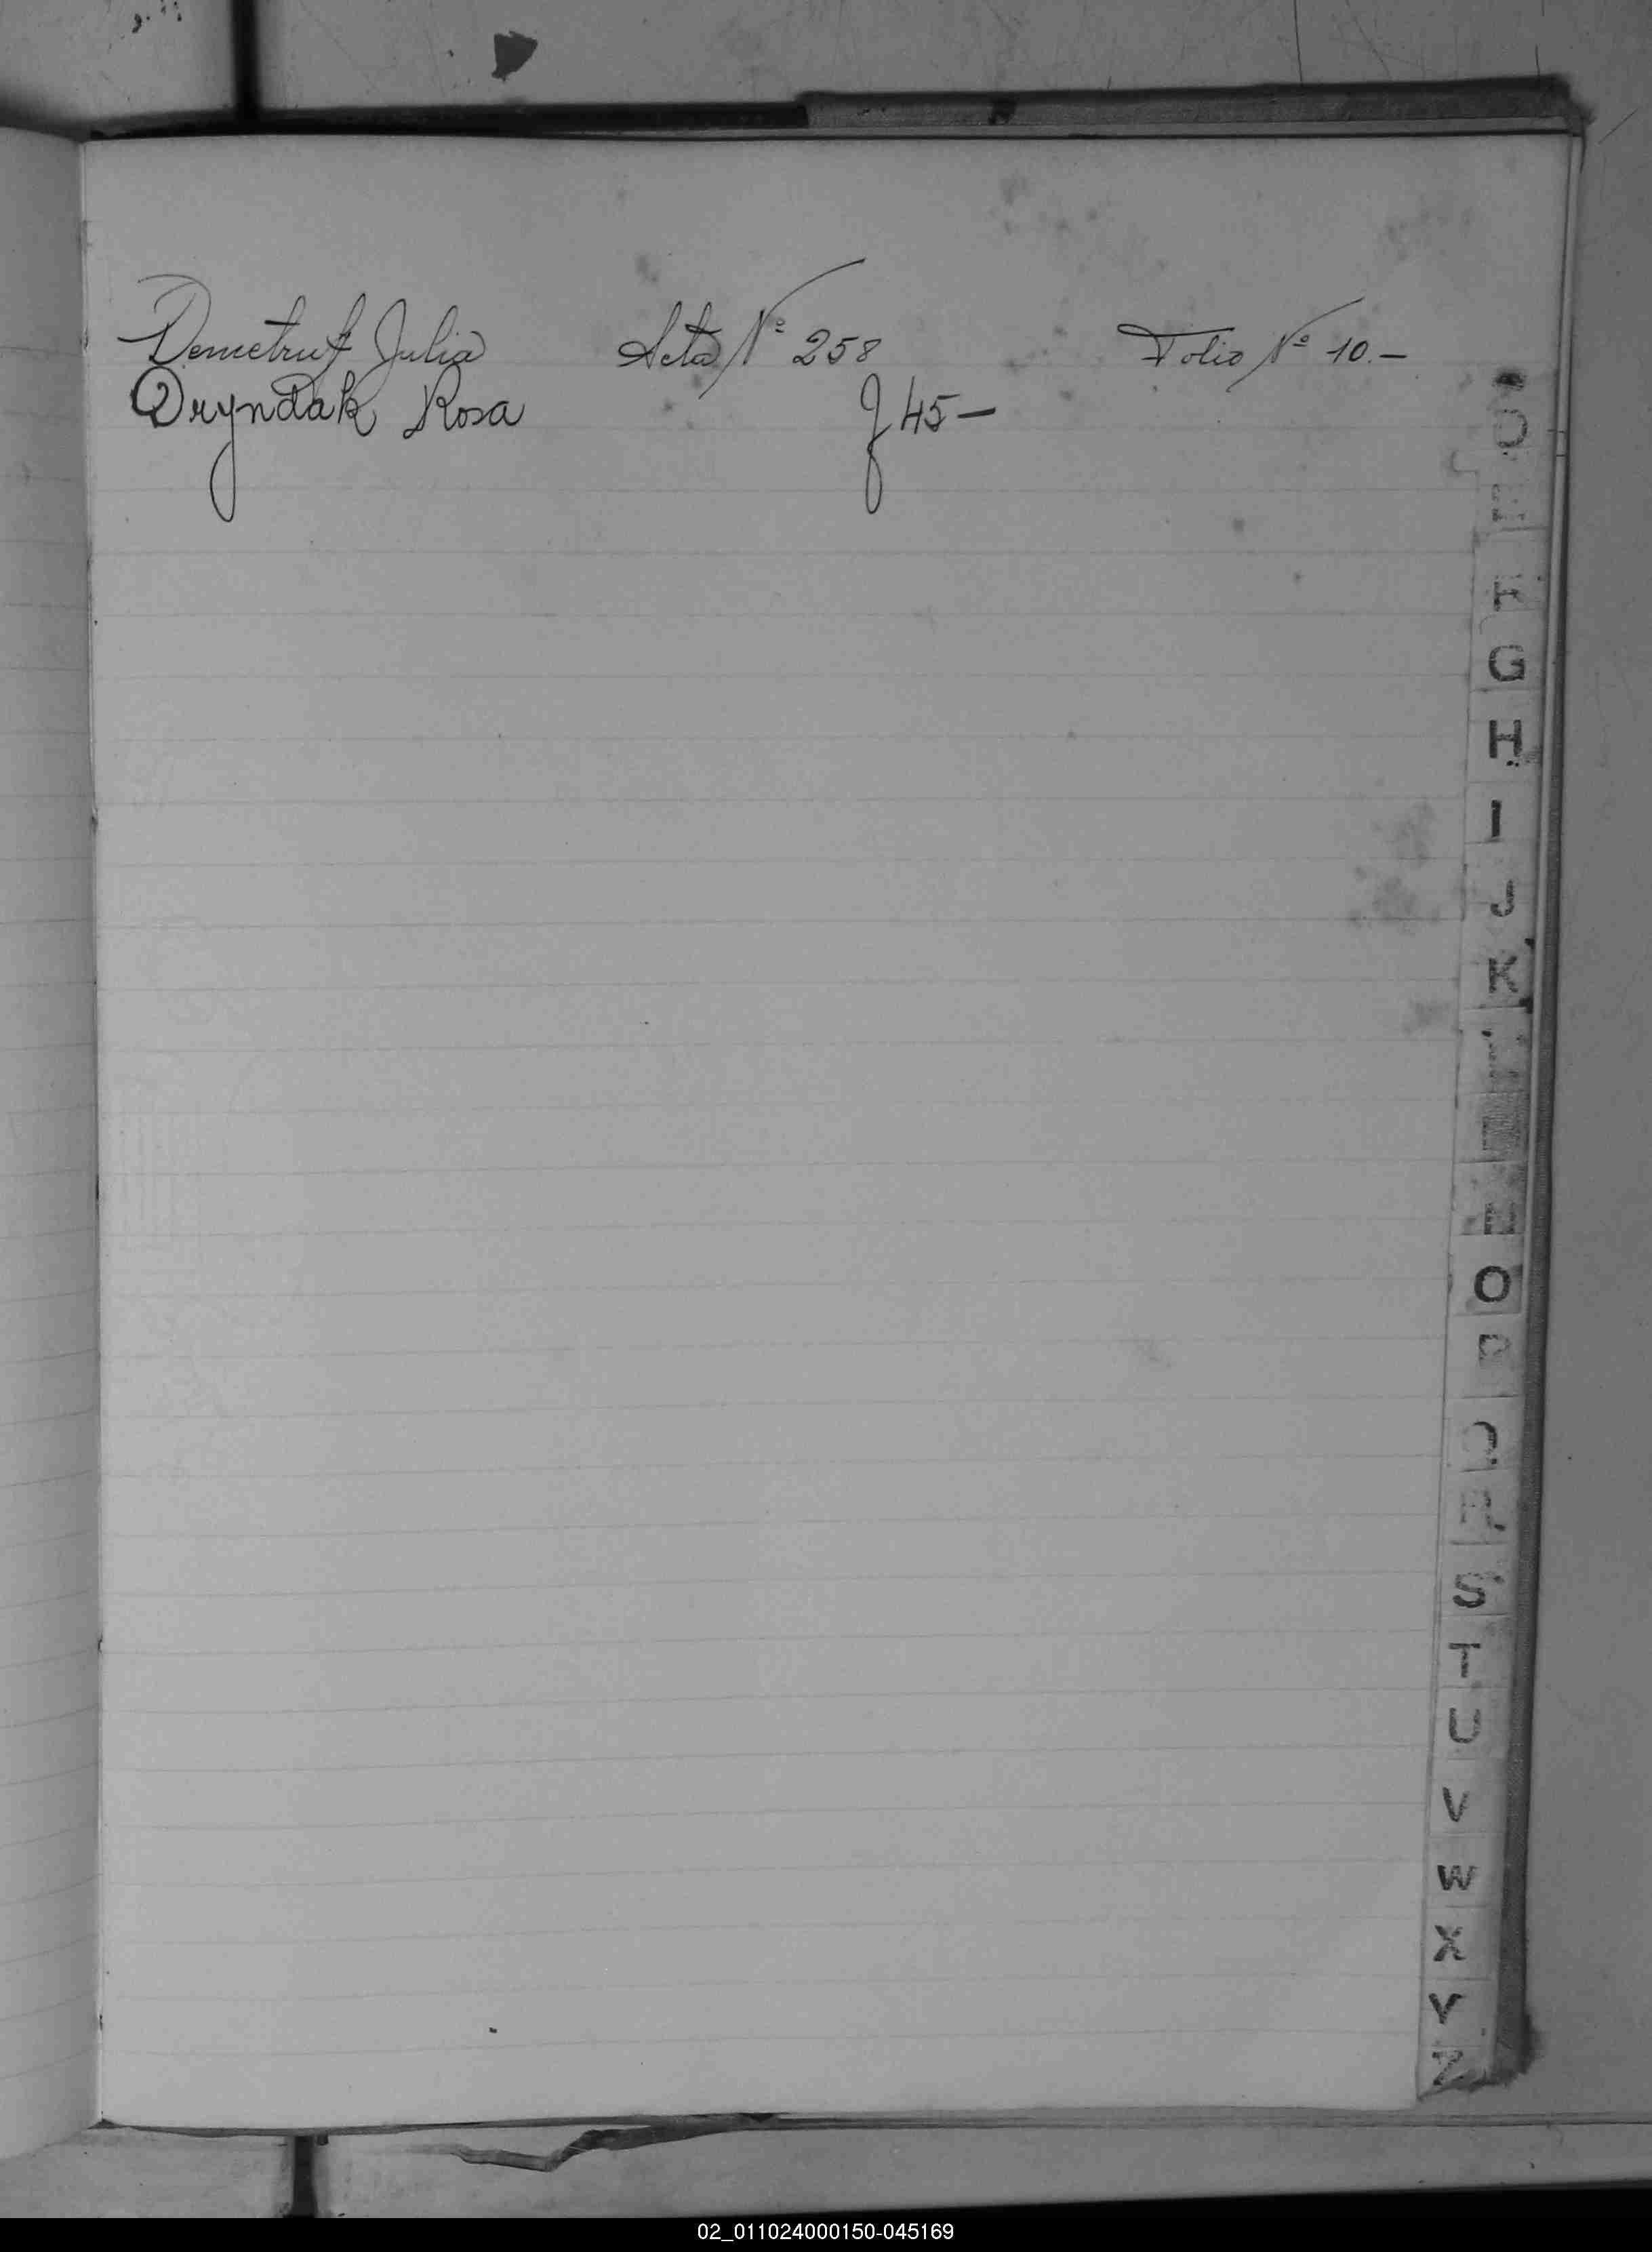 Demetruf Julia Acta Nº 258 Folio Nº 10.-
Dryndak Rosa 45-
D
F
G
H
I
J
K
O
P
Q
R
S
T
U
V
W
X
Y
Z
02_011024000150-045169